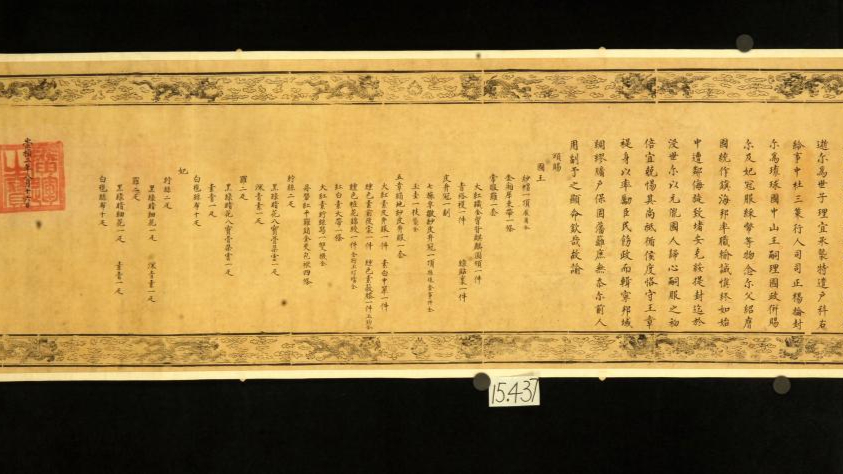 尔為世子理宜承襲特遣戶科右
給事中杜三策行人司司正楊掄封
尔為琉球國中山王嗣理國政併賜
尔及妃冠服綵幣等物念尔父紹膺
國統作鎮海邦率職輸誠慎終如始
中遭鄰侮旋致堵安克綏提封迄於
沒世尔以元儲國人歸心嗣服之初
倍宜兢惕其尚祗循侯度恪守王章
褆身以率勵臣民飭政而輯寧邦域
綢繆牖戶保固藩籬庶無忝尔前人
用副予之顯命欽哉故諭
頒賜
國王
紗帽一頂展角全
金廂犀束帶一條
常服羅一套
大紅織金胷背麒麟圓領一件
青褡𧞤一件 綠貼裏一件
皮弁冠一副
七旒皁皺紗皮弁冠一頂旒珠金事件全
玉圭一枝袋全
五章絹地紗皮弁服一套
大紅素皮弁服一件 素白中單一件
纁色素前後裳一件 纁色素蔽膝一件玉鉤全
纁色粧花錦綬一件金鉤玉玎璫全
紅白素大帶一條
大紅素紵絲舄一雙襪全
丹礬紅平羅銷金夾包袱四條
紵絲二疋
黑綠暗花八寶骨朵雲一疋
深青素一疋
羅二疋
黑綠暗花八寶骨朵雲一疋
青素一疋
白氁絲布十疋
妃
紵絲二疋
黑綠暗細花一疋 深青素一疋
羅二疋
黑綠暗細花一疋 青素一疋
白氁絲布十疋
15.437